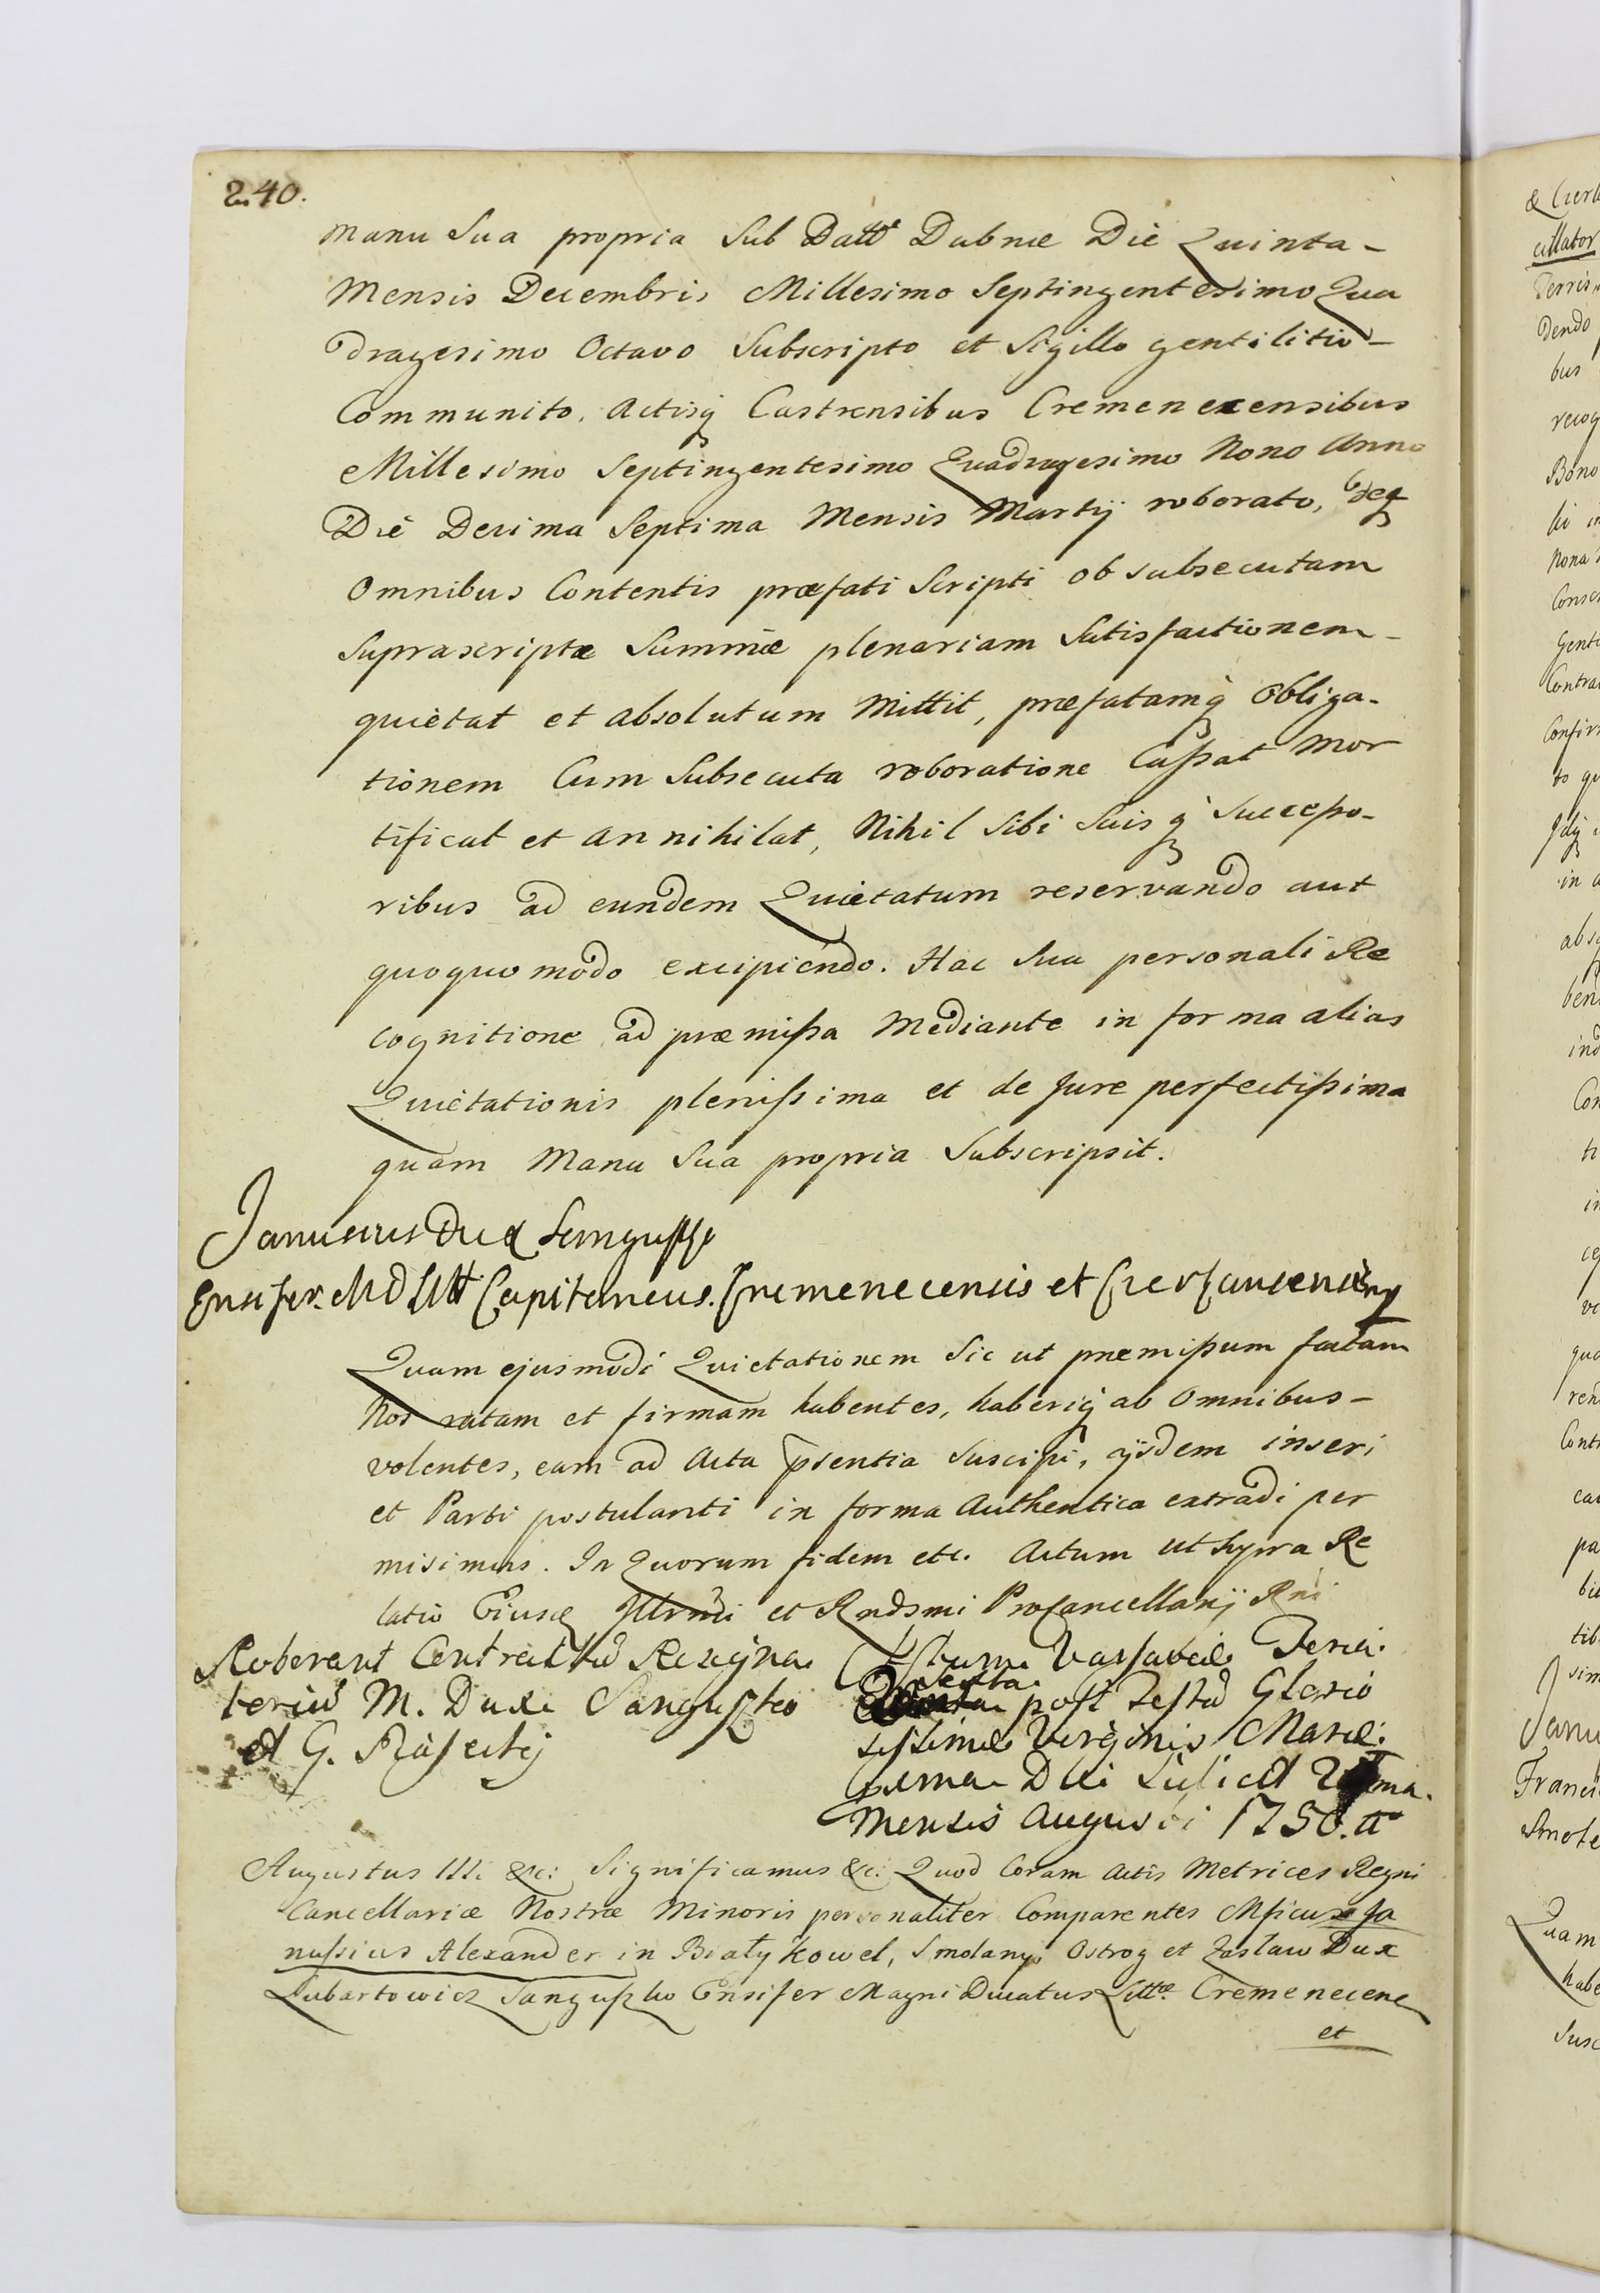 240.
manu Sua propria Sub Datte Dubnæ Die Quinta -
Mensis Decembris Millesimo Septingentesimo Qua
dragesimo Octavo Subscripto et Sigillo gentilitio -
Communito. Actisq Castrensibus Cremenecensibus
Millesimo Septingentesimo Quadragesimo Nono Anno
Die Decima Septima Mensis Martij roborato, deq
Omnibus Contentis præfati Scripti ob subsecutam
Suprascriptæ Summæ plenariam Satisfactionem -
quietat et absolutum Mittit, præfatamq Obliga-
tionem Cum Subsecuta roboratione Cassat Mor
tificat et annihilat, Nihil Sibi Suisq Successo-
ribus ad eundem Quietatum reservando aut
quoquo modo excipiendo. Hac Sua personali Re
cognitione ad præmissa Mediante in forma alias
Quietationis plenissima et de Jure perfectissima
quam Manu Sua propria Subscripsit.
Janusius Dux Sangusz
Ensifer. MDLitt Capitaneus. Cremenecensis et
Quam ejusmodi Quietationem Sic ut præmissum factam
Nos ratam et firmam habentes, haberiq ab Omnibus -
volentes, eam ad Acta psentia Suscipi, ijsdem inseri
et Parti postulanti in forma Authentica extradi per
misimus. In Quorum fidem etc. Actum ut Supra Re
latio Eiusd Illrmi et Rndsmi Procancellarij Rni
Roborant Contractu Recigna
teriu M. Duxe Sanguszko
et G.
Actum Varsaviæ Feria
sexta
post Festu Glorio
sissimæ Virginis Mariæ
Die
Mensis Augusti 1750. a
Augustus III. &c: Significamus &c: Quod Coram Actis Metrices Regni
Cancellariæ Nostræ Minoris personaliter Comparentes Mficus Ja
nussius Alexander in Biały Kowel, Smolany, Ostrog et Zasław Dux
Lubartowicz Sanguszko Ensifer Magni Ducatus Littæ Cremenecens
et